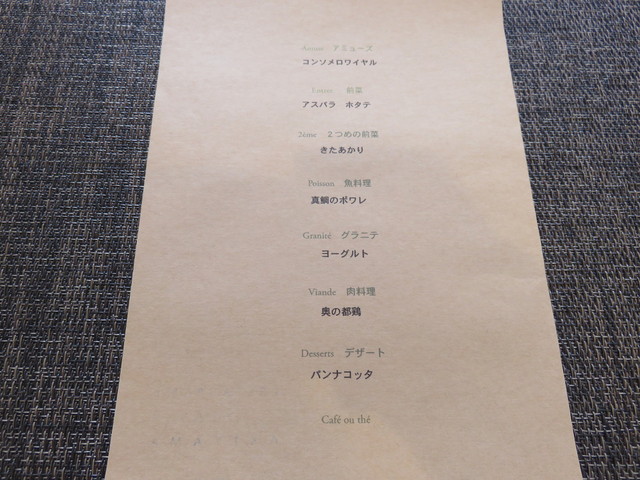 Amuse　アミューズ
コンソメロワイヤル
Entree　前菜
アスパラ　ホタテ
2ème　２つめの前菜
きたあかり
Poisson　魚料理
真鯛のポワレ
Granité　グラニテ
ヨーグルト
Viande　肉料理
奥の都鶏
Desserts　デザート
パンナコッタ
Café ou thé